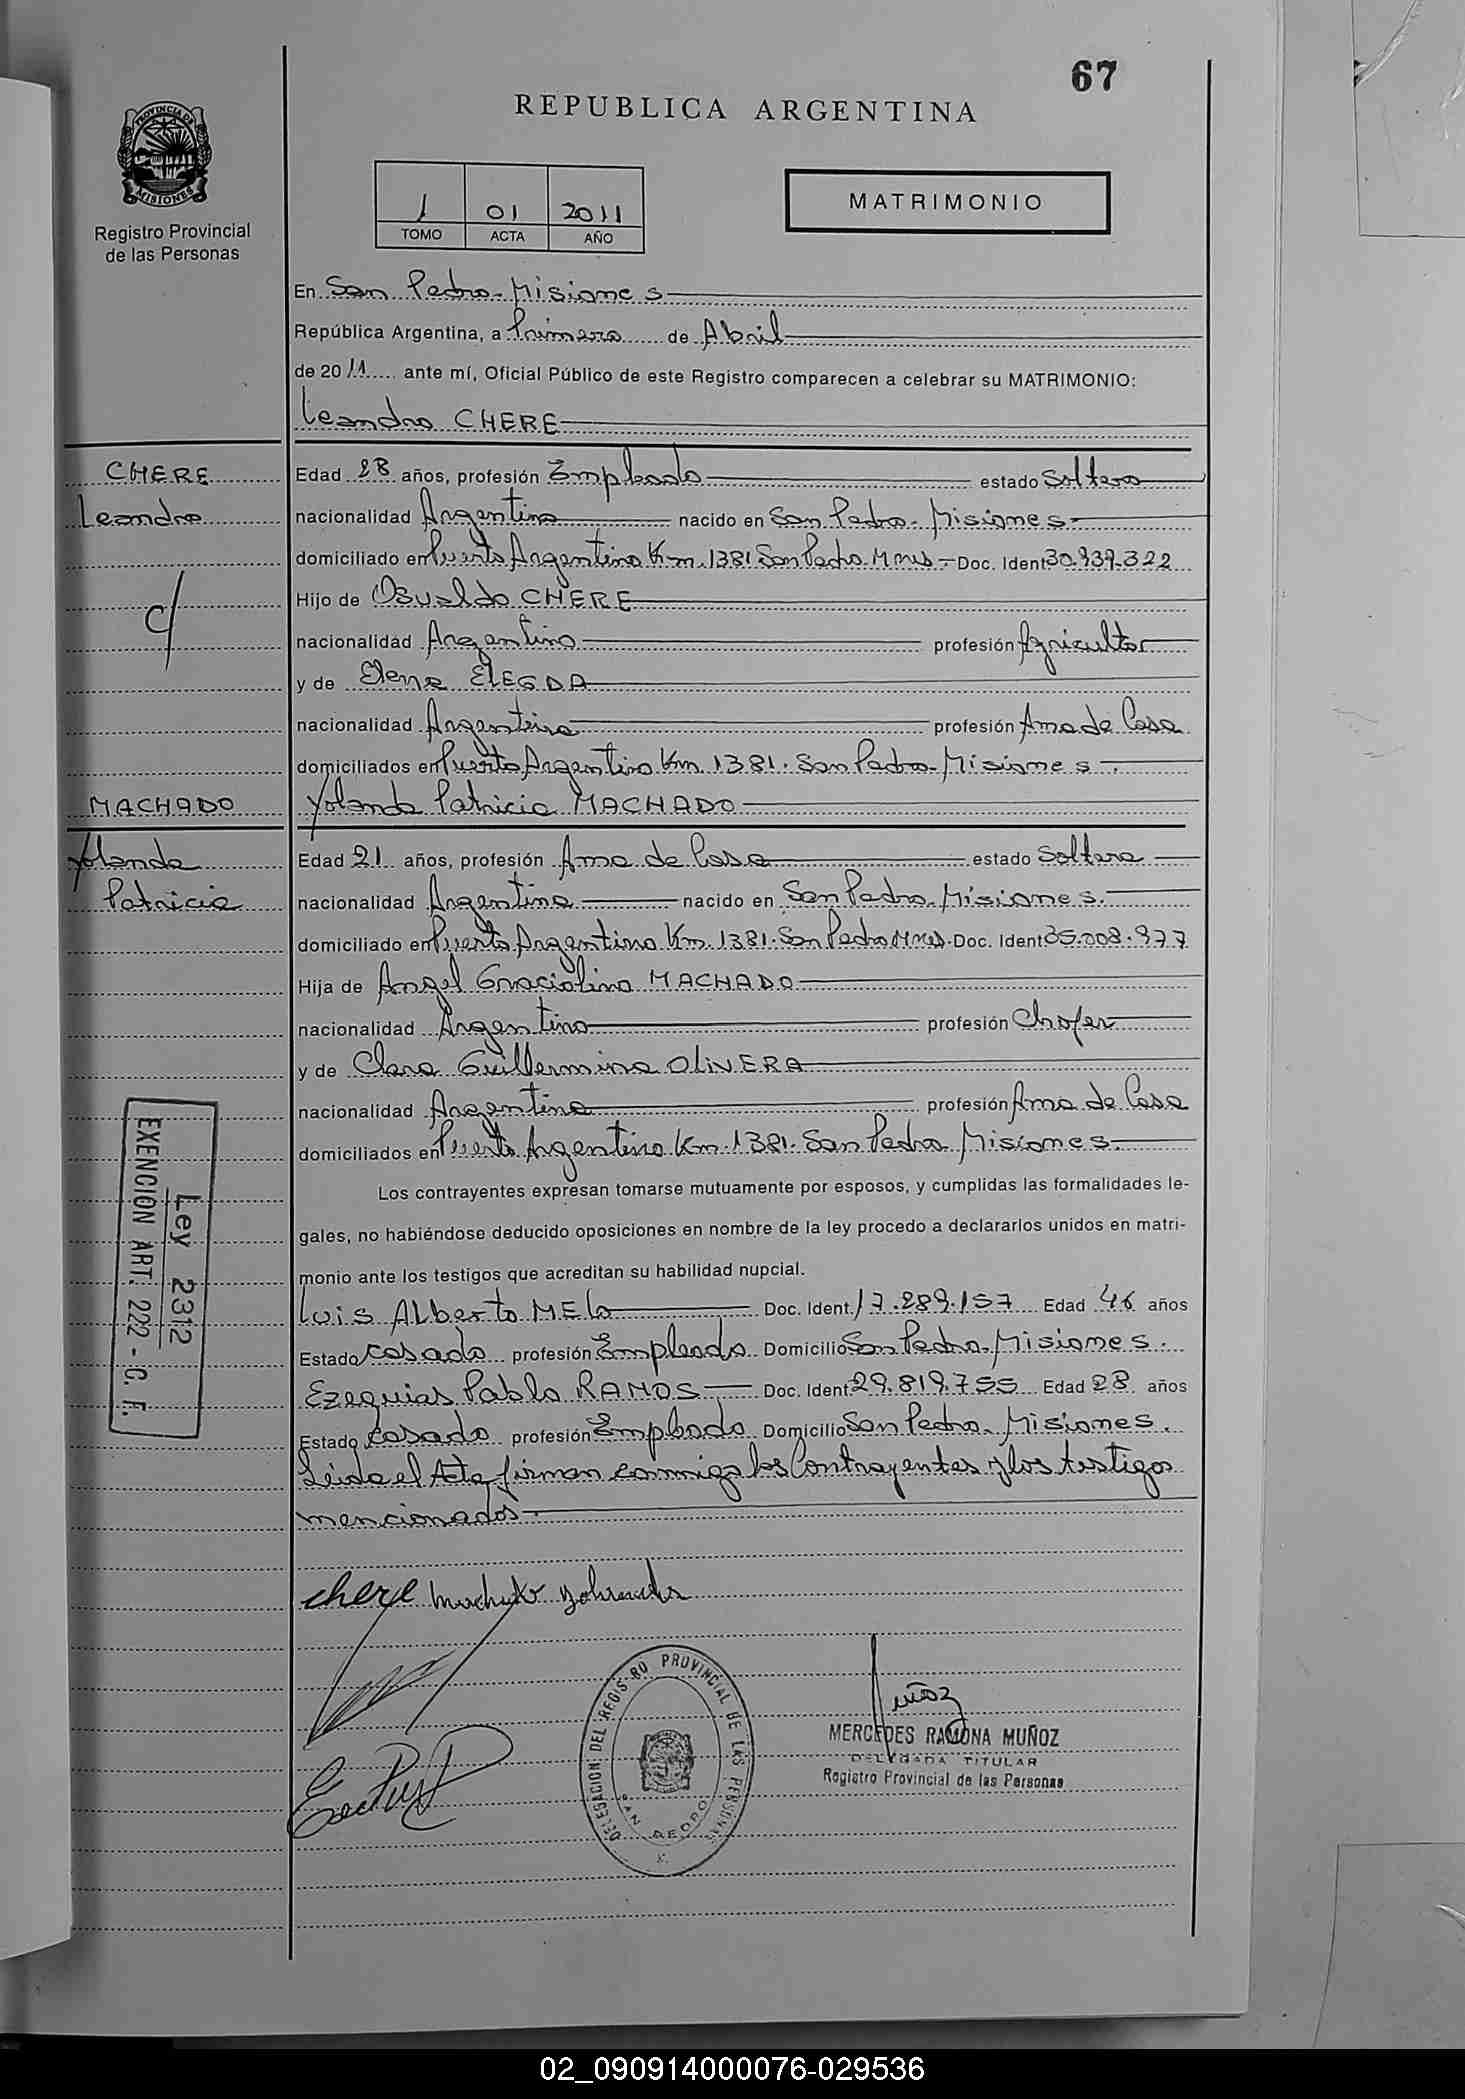 67
REPUBLICA ARGENTINA
PROVINCIA DE
MISIONES
Registro Provincial
de las Personas
1 01 2011
TOMO ACTA AÑO
MATRIMONIO
En San Pedro-Misiones
República Argentina, a Primero de Abril
de 2011 ante mí, Oficial Público de este Registro comparecen a celebrar su MATRIMONIO:
Leandro CHERE
CHERE
Leandro
c/
MACHADO
Yolanda
Patricia
Edad 28 años, profesión Empleado estado Soltero
nacionalidad Argentino nacido en San Pedro-Misiones
domiciliado en Puerto Argentino Km. 1381 San Pedro Mnes- Doc. Ident 30.939.322
Hijo de Osvaldo CHERE
nacionalidad Argentino profesión Agricultor
y de Elena ELEGDA
nacionalidad Argentina profesión Ama de Casa
domiciliados en Puerto Argentino Km. 1381. San Pedro-Misiones.
Yolanda Patricia MACHADO
Edad 21 años, profesión Ama de Casa estado Soltera
nacionalidad Argentina nacido en San Pedro-Misiones.
domiciliado en Puerto Argentino Km. 1381. San Pedro Mnes. Doc. Ident 35.008.977
Hija de Angel Graciolino MACHADO
nacionalidad Argentino profesión Chofer
y de Clara Guillermina OLIVERA
nacionalidad Argentina profesión Ama de Casa
domiciliados en Puerto Argentino Km. 1381. San Pedro-Misiones.
Los contrayentes expresan tomarse mutuamente por esposos, y cumplidas las formalidades le-
gales, no habiéndose deducido oposiciones en nombre de la ley procedo a declararlos unidos en matri-
monio ante los testigos que acreditan su habilidad nupcial.
Luis Alberto MELO Doc. Ident. 17.289.157 Edad 46 años
Estado Casado profesión Empleado Domicilio San Pedro-Misiones.
Ezequias Pablo RAMOS Doc. Ident 29.819.755 Edad 28 años
Estado Casado profesión Empleado Domicilio San Pedro-Misiones.
Leida el Acta firman conmigo los Contrayentes y los testigos
mencionados-
Ley 2312
EXENCION ART. 222 - C. F.
chere Machado Yolanda
DELEGACION DEL REGISTRO PROVINCIAL DE LAS PERSONAS
SAN PEDRO
Muñoz
MERCEDES RAMONA MUÑOZ
DELEGADA TITULAR
Registro Provincial de las Personas
02_090914000076-029536